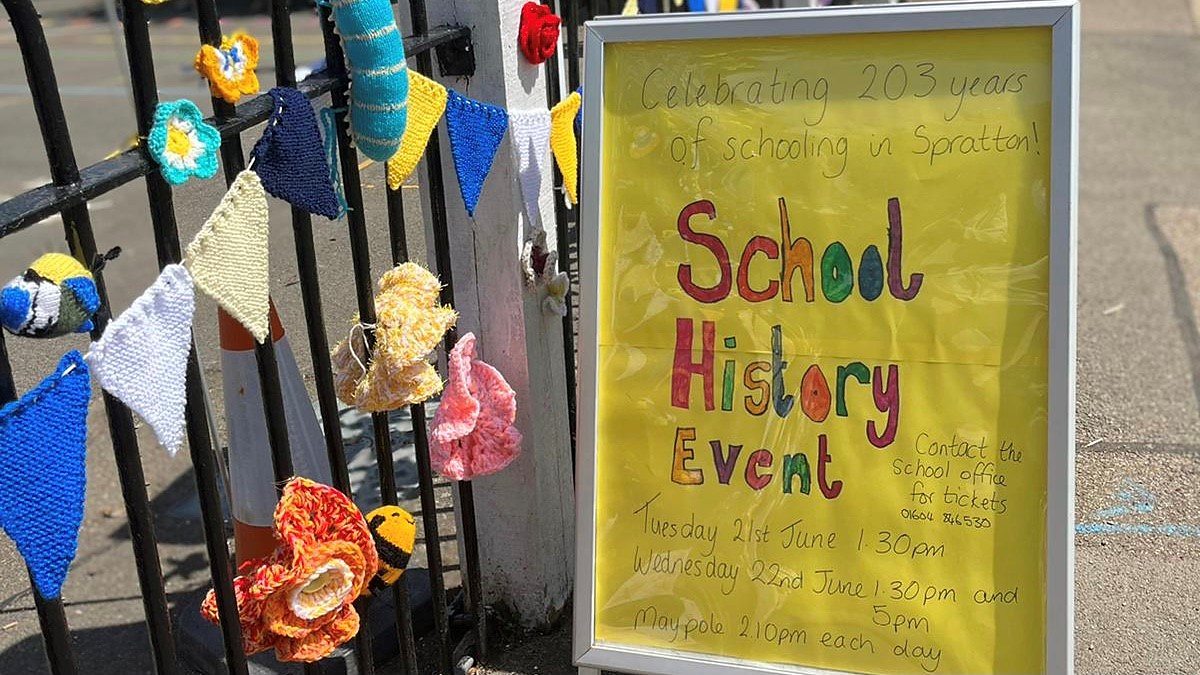 Celebrating 203 years
of schooling in Spratton!
School
History
Event
Contact the
school office
for tickets
01604 846530
Tuesday 21st June 1.30pm
Wednesday 22nd June 1.30pm and
5pm
Maypole 2.10pm each day